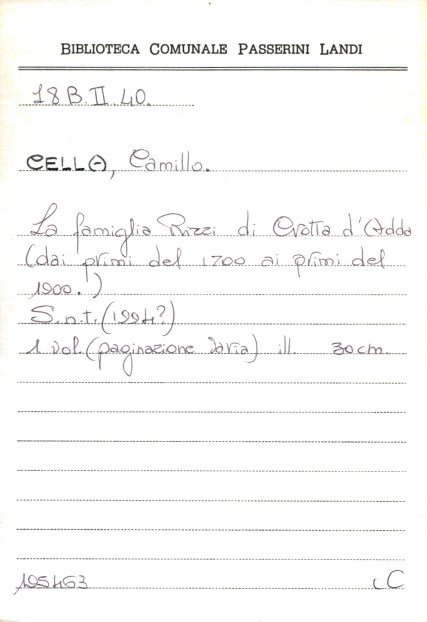 BIBLIOTECA COMUNALE PASSERINI LANDI
18 B.II.40.
CELLA, Camillo.
La famiglia Rizzi di Crotta d'Adda
(dai primi del 1700 ai primi del
1900.)
S.n.t. (1994?)
1 vol. (paginazione varia) ill. 30 cm.
195463 C